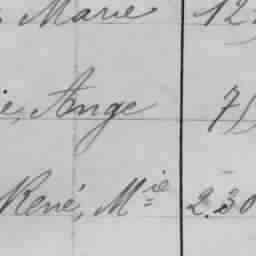 Marie 12
ie, Ange 7
René, Mie 2.30